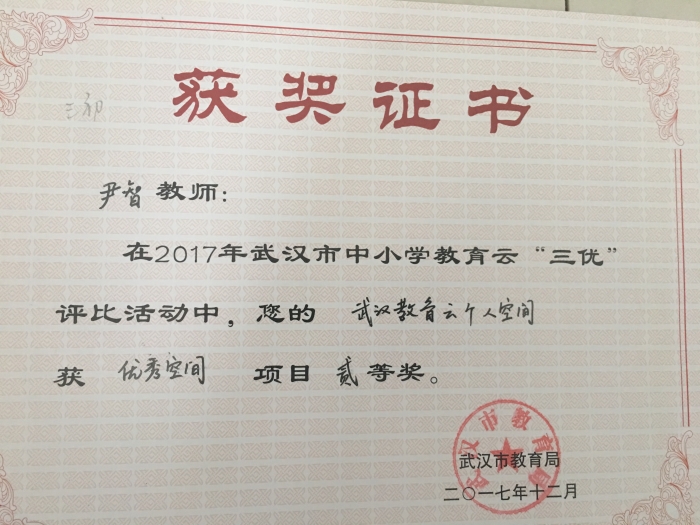 获奖证书
三初
尹智教师：
在2017年武汉市中小学教育云“三优”
评比活动中，您的 武汉教育云个人空间
获 优秀空间 项目 贰等奖。
武汉市教育局
武汉市教育局
二〇一七年十二月